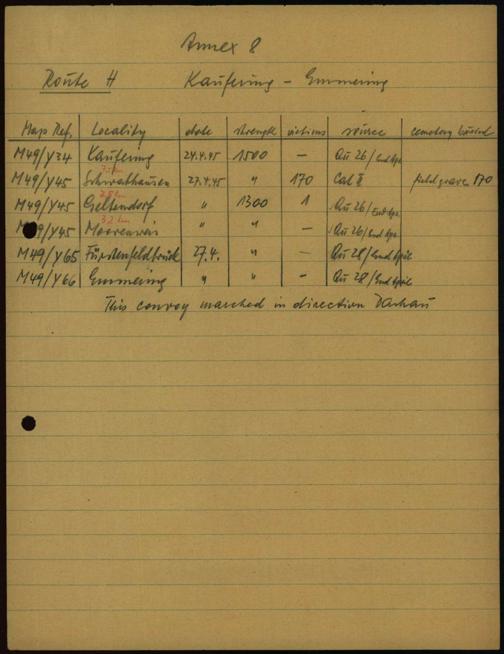 Annex 8
Route H Kaufering - Emmering
Map Ref. Locality date strength victims source cemetery buried
M49/Y34 Kaufering 24.4.45 1500 — Qu 26/End Apr.
M49/Y45 Schwabhausen 27.4.45 " 170 Cat II field graves 170
M49/Y45 Geltendorf " 1300 1 Qu 26/End Apr.
/Y45 Moorenweis " " Qu 26/End Apr.
M49/Y65 Fürstenfeldbruck 27.4. " — Qu 28/End April
M49/Y66 Emmering " " — Qu 28/End April
This convoy marched in direction Dachau